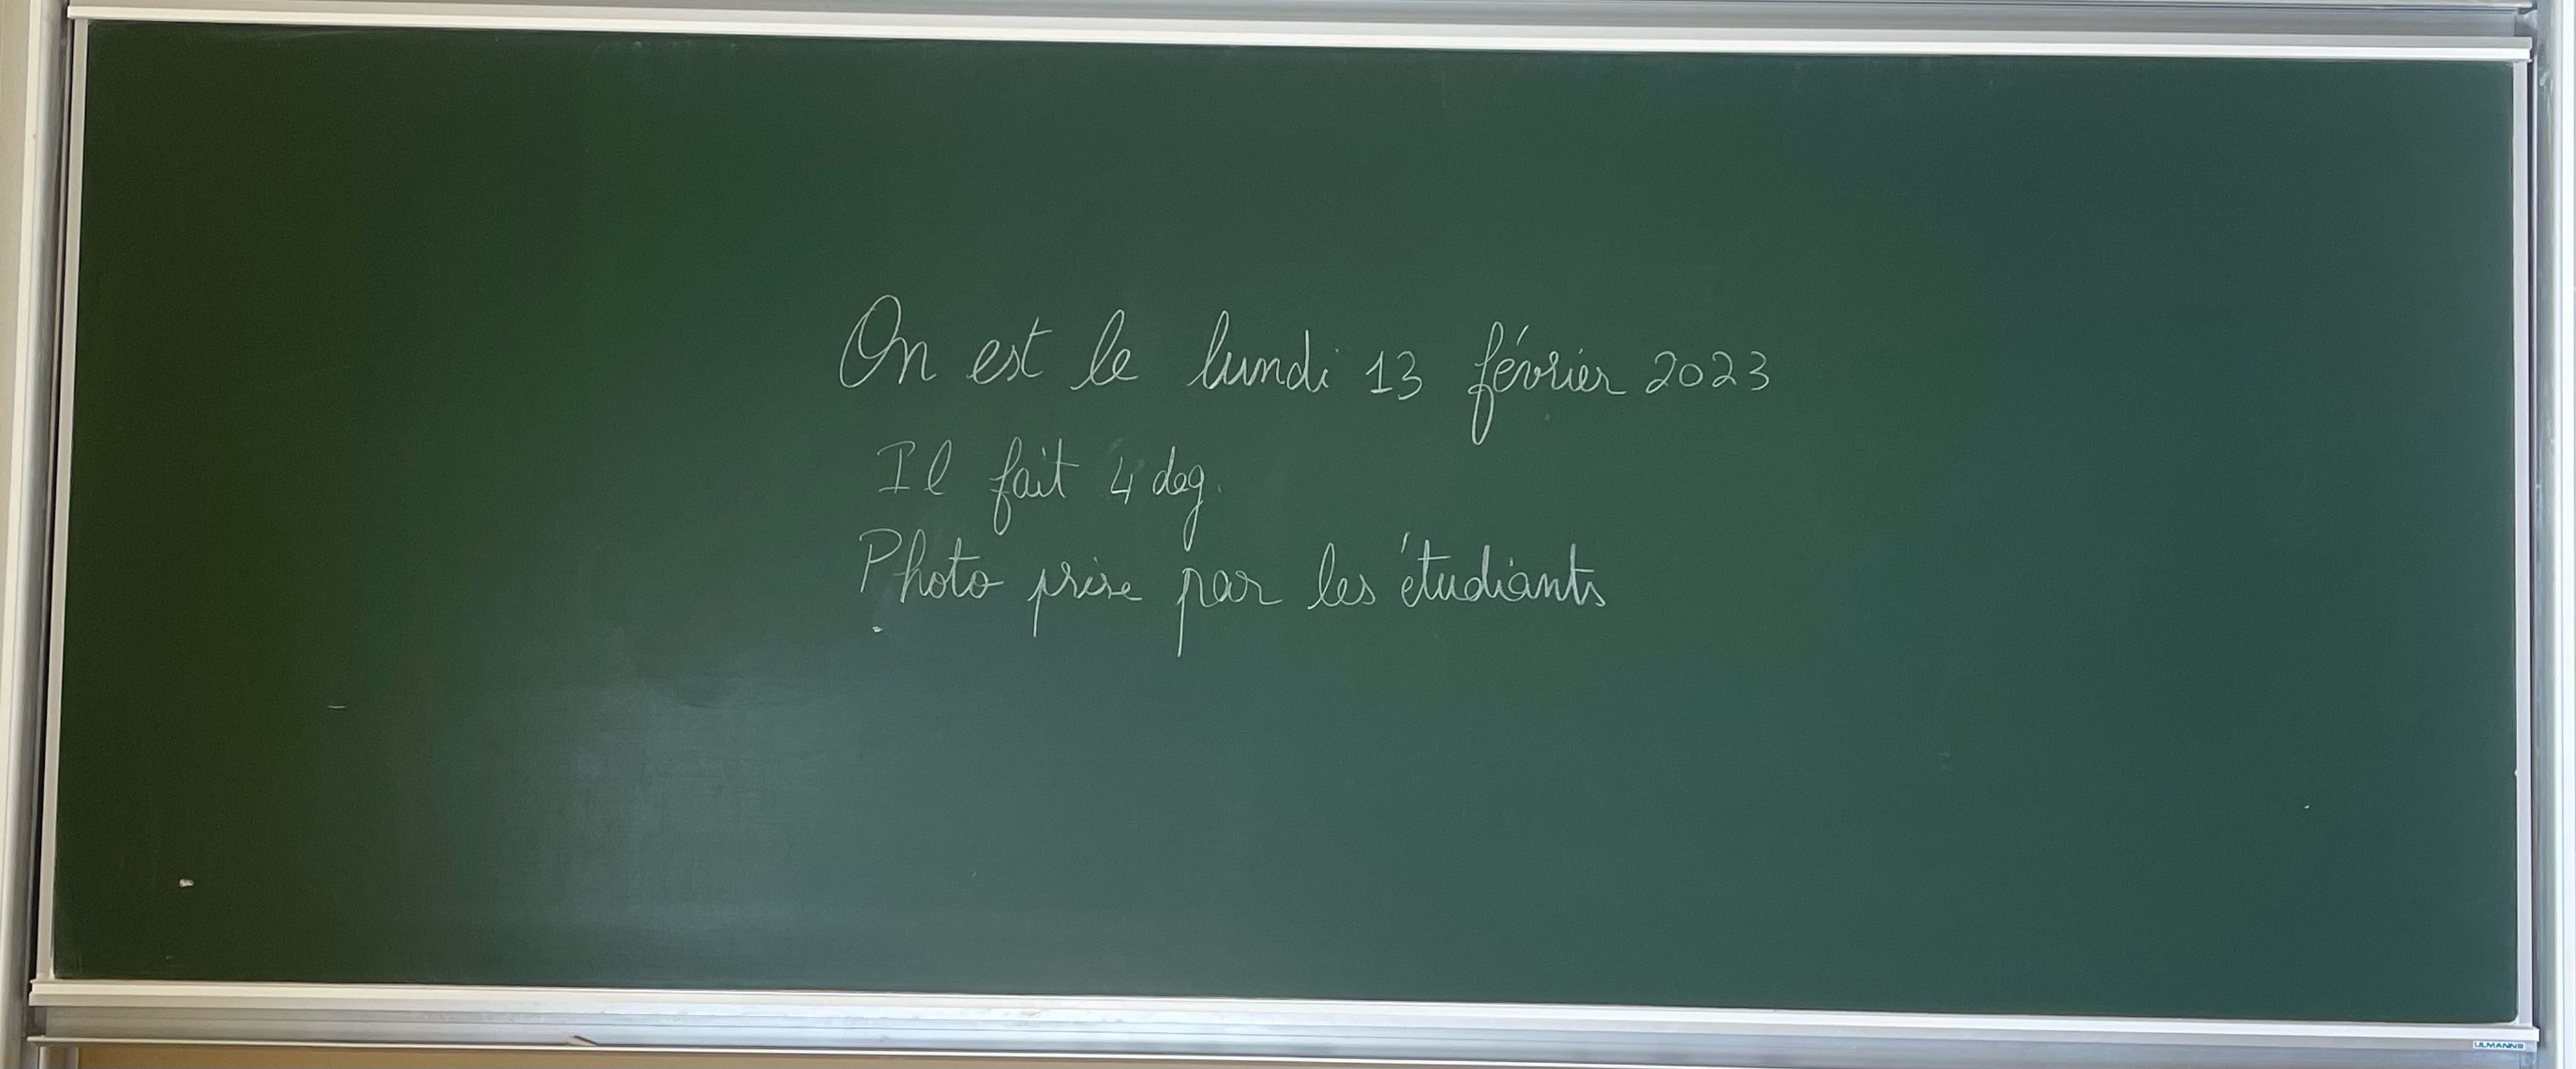 On est le lundi 13 février 2023
Il fait 4 deg.
Photo prise par les étudiants
ULMANN